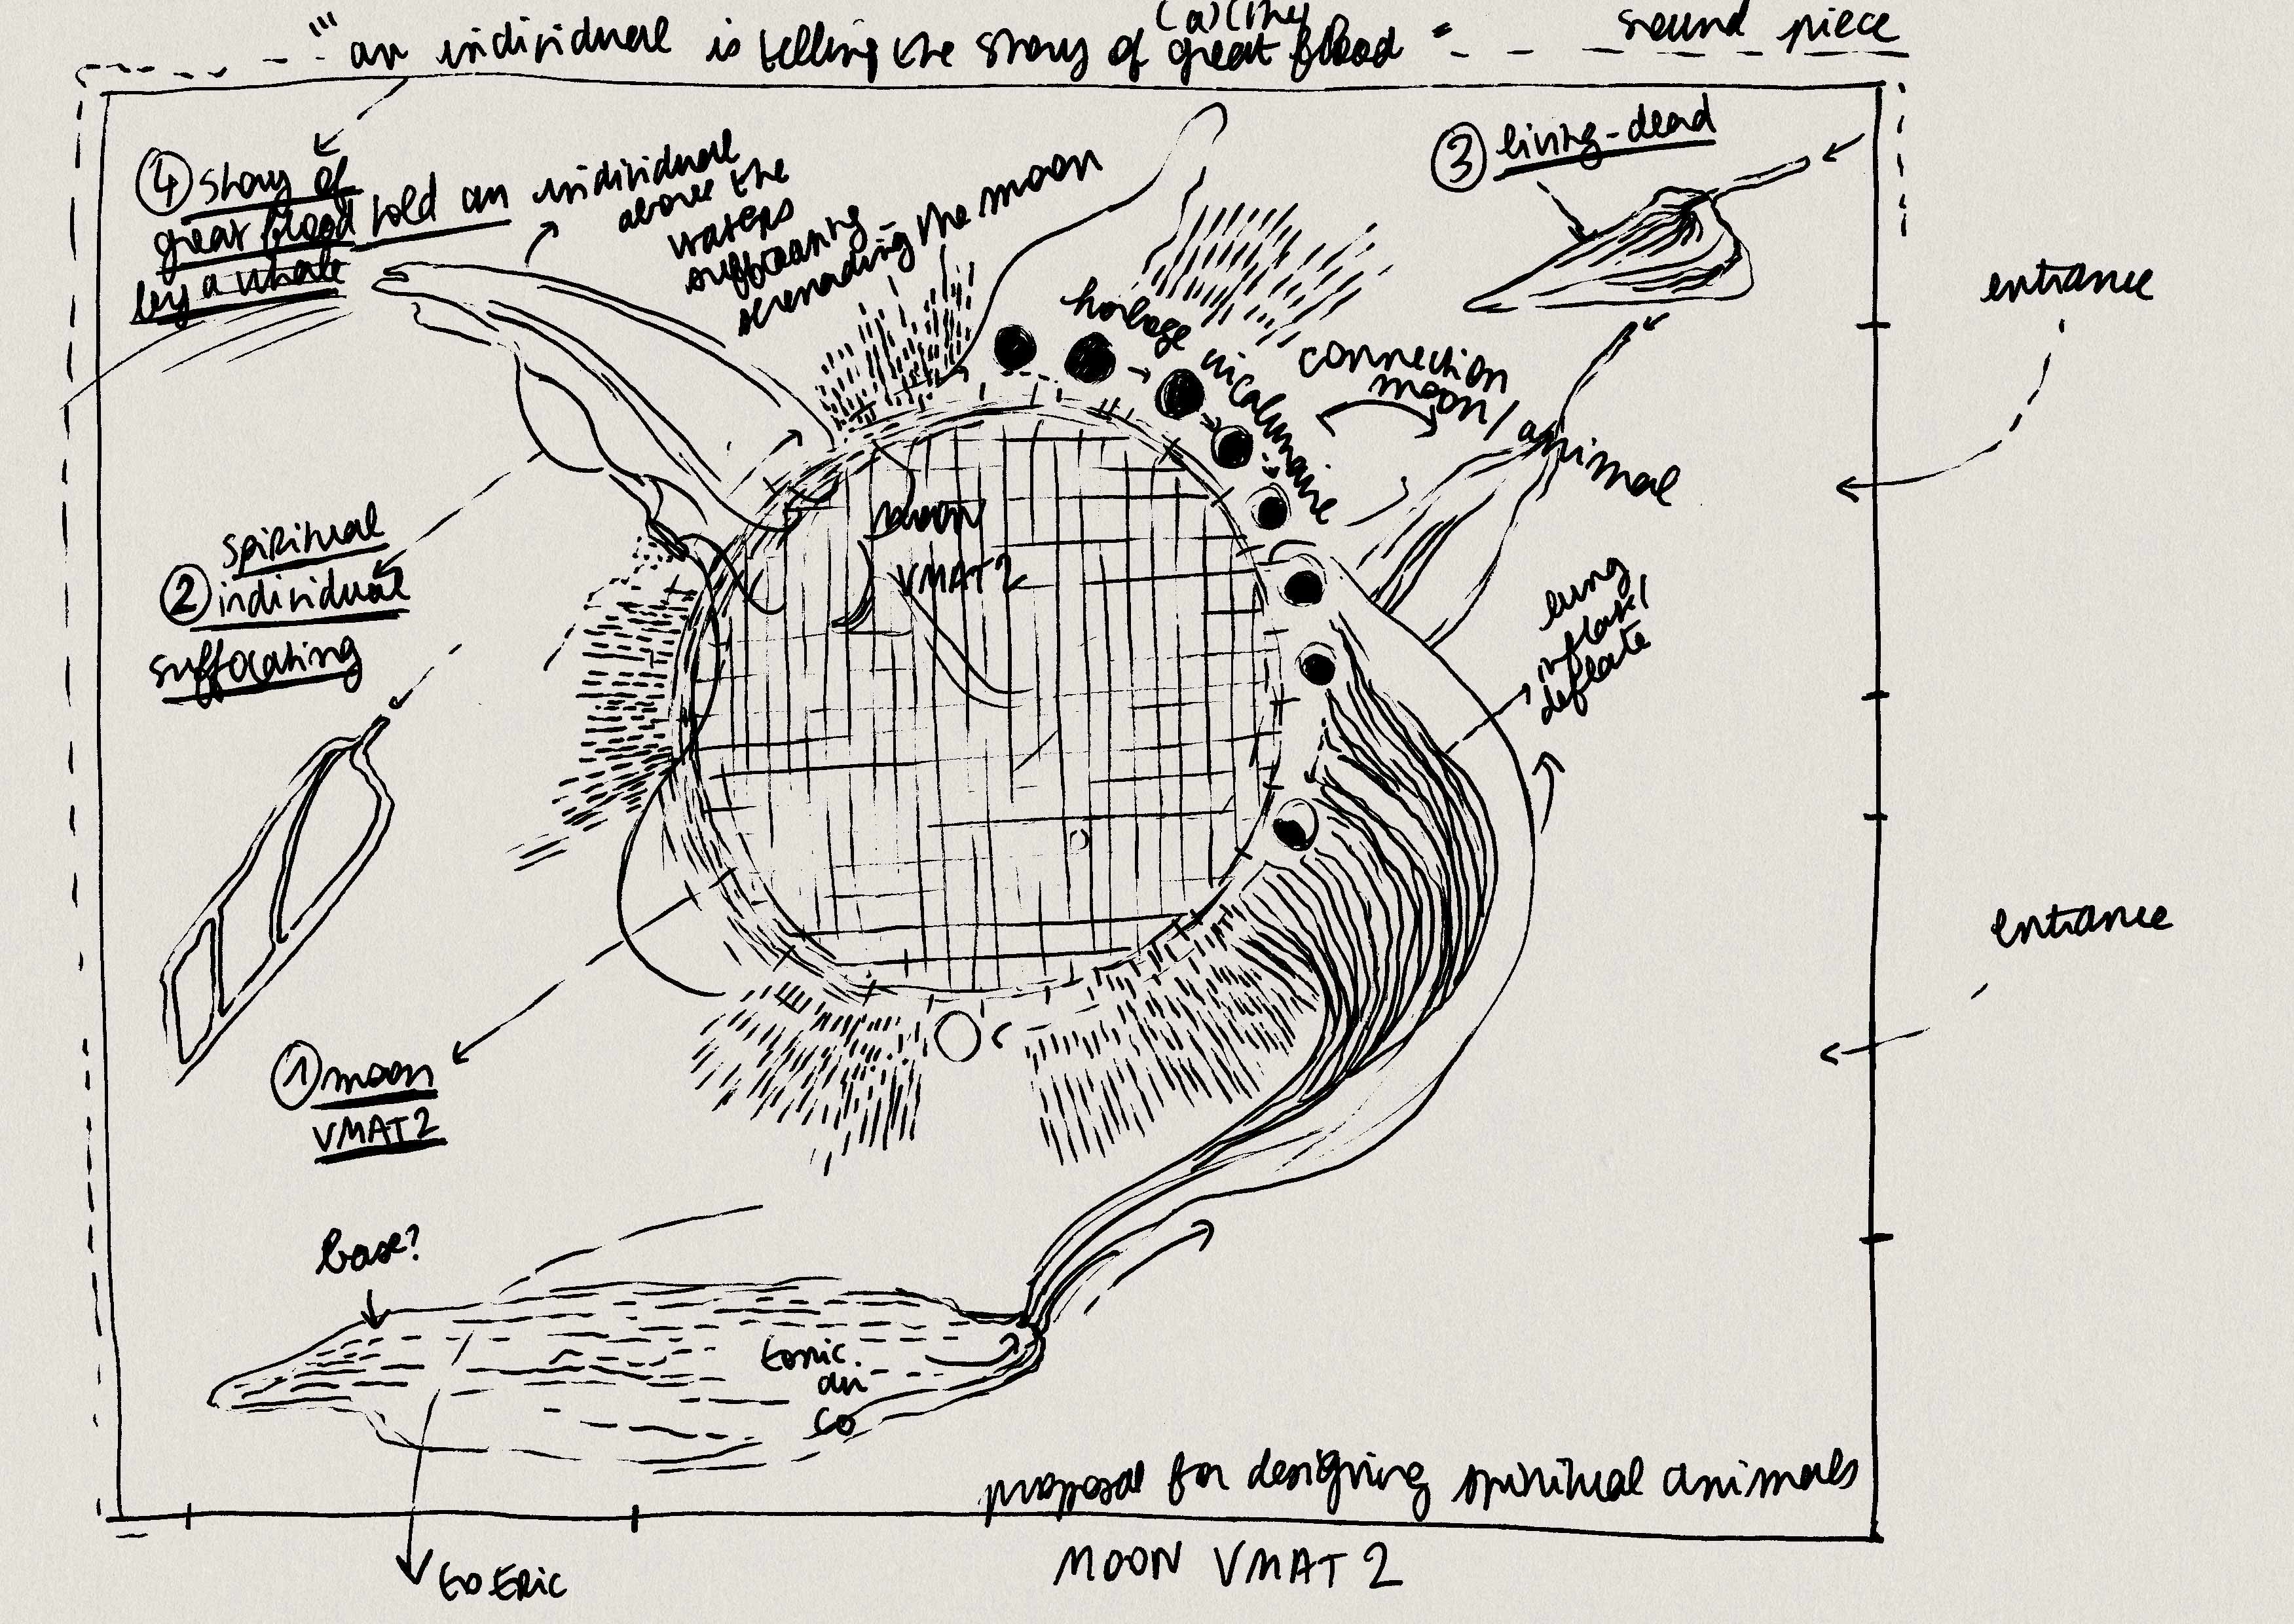 (a)(the)
"" an individual is telling the story of great flood "
sound piece
④ story of
great flood told an individual
by a whale
above the
waters
suffocating
serenading the moon
③ living-dead
entrance
horloge
connection
moon/animal
moon
VMAT2
spiritual
② individual
suffocating
lung
inflate/
deflate
entrance
① moon
VMAT2
base?
tonic.
air
CO
proposal for designing spiritual animals
MOON VMAT 2
to Eric